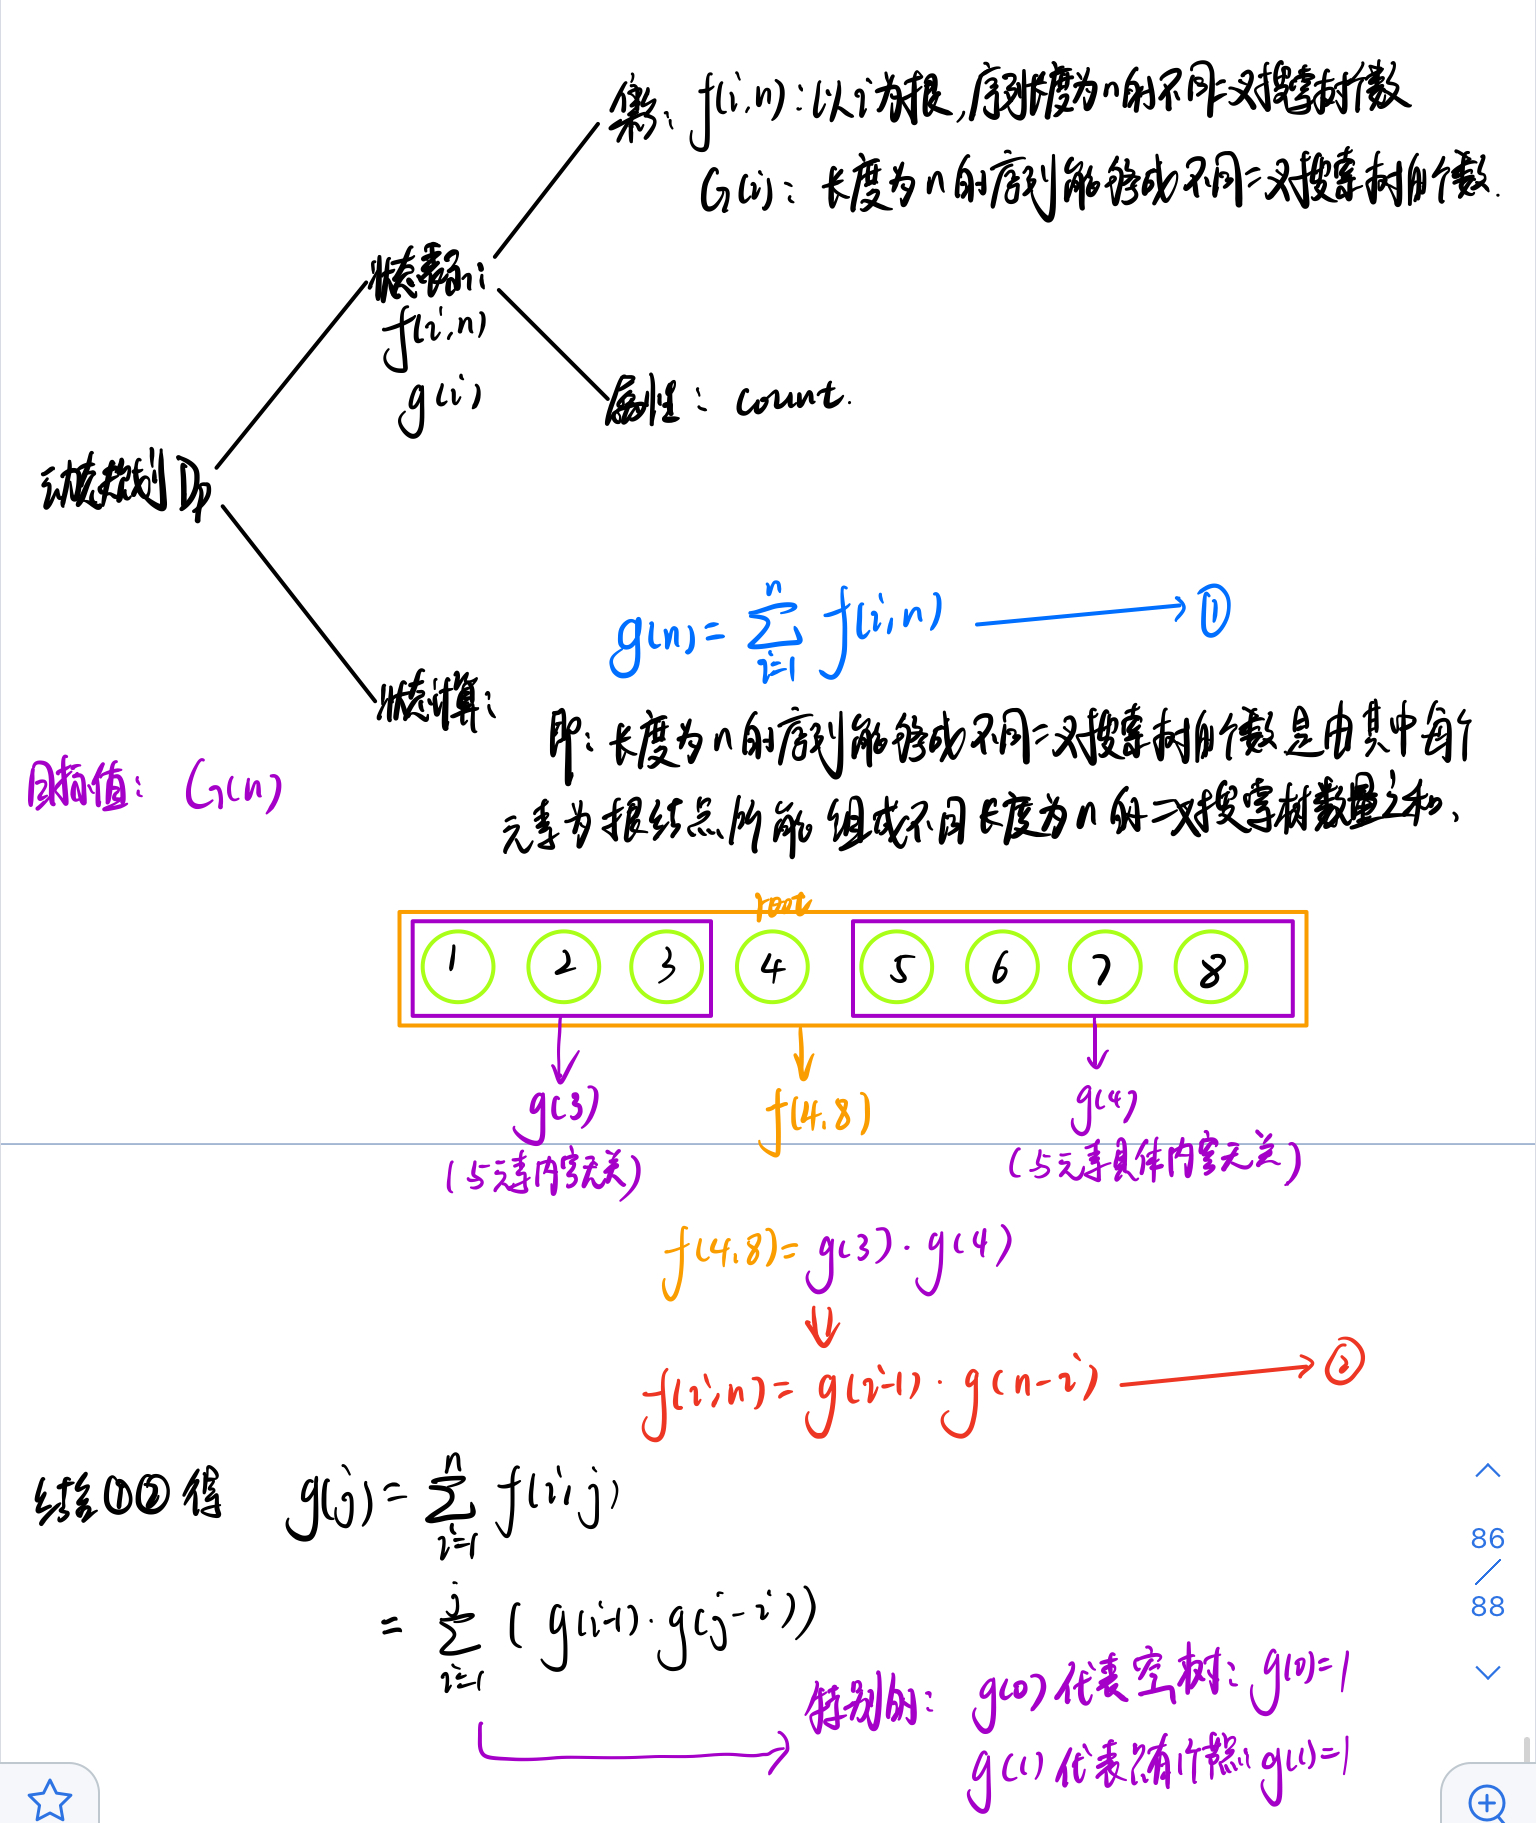 集合: f(i,n):以i为根,序列长度为n的不同二叉搜索树个数
G(i): 长度为n的序列能够成不同二叉搜索树的个数.
状态表示:
f(i,n)
g(i)
属性: count.
动态规划Dp
g(n)=∑_{i=1}^{n} f(i,n) → ①
状态计算:
即: 长度为n的序列能够成不同二叉搜索树的个数是由其中每个
目标值: G(n)
元素为根结点所能组成不同长度为n的二叉搜索树数量之和、
root
1 2 3 4 5 6 7 8
g(3) f(4,8) g(4)
(与元素内容无关) (与元素具体内容无关)
f(4,8)=g(3)·g(4)
f(i,n)=g(i-1)·g(n-i) → ②
结合①②得 g(j)=∑_{i=1}^{n} f(i,j)
=∑_{i=1}^{j} (g(i-1)·g(j-i))
特别的: g(0)代表空树: g(0)=1
g(1)代表只有1个节点: g(1)=1
86
/
88